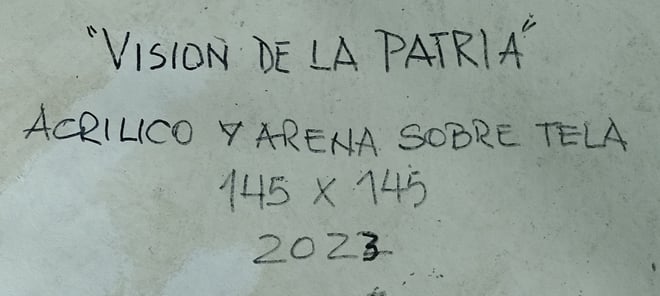 "VISION DE LA PATRIA"
ACRILICO Y ARENA SOBRE TELA
145 X 145
2023